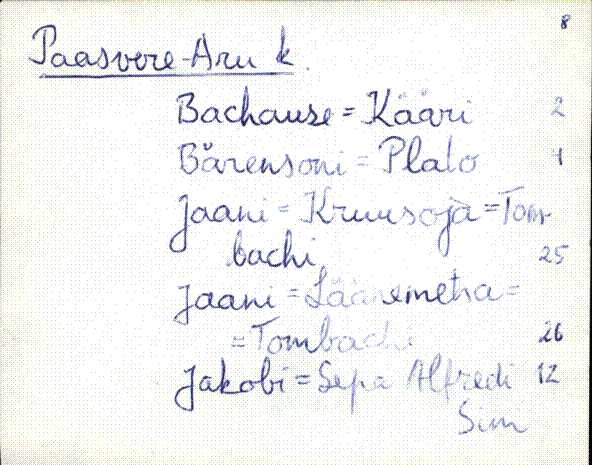 8
Paasvere-Aru k.
Bachause = Kääri 2
Bärensoni = Plato 1
Jaani = Kruusoja = Tom-
bachi 25
Jaani = Läänemetsa =
= Tombachi 26
Jakobi = Sepa Alfredi 12
Sim